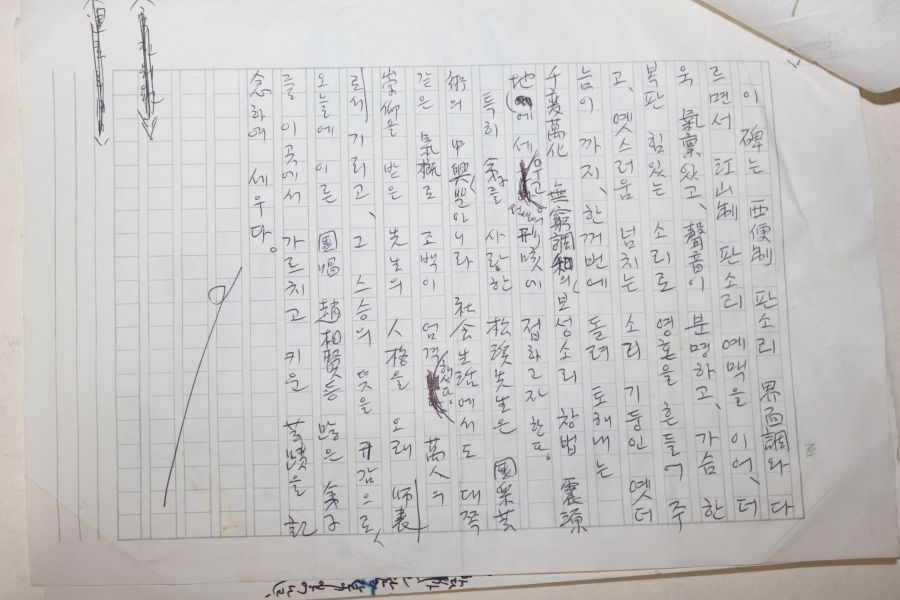 이 碑는 西便制 판소리 界面調와 다
르면서 江山制 판소리 예맥을 이어, 더
욱 氣稟있고, 聲音이 분명하고, 가슴 한
복판 힘있는 소리로 영혼을 흔들어 주
고, 옛스러움 넘치는 소리 기둥인 옛더
늠이 까지, 한꺼번에 돌려 토해내는
千變萬化 無窮調和의 보성소리 창법 震源
地에 세우고 접하고자 한다.
특히 사랑한 先生은 國樂藝
術의 中興뿐아니라 社会生活에서도 대쪽
같은 氣槪로 조백이 엄격하셨다. 萬人의
崇仰을 받은 先生의 人格을 오래 師表
로서 기리고, 그 스승의 뜻을 귀감으로,
오늘에 이른 國唱 趙相賢等 많은
들 이곳에서 가르치고 키운 業蹟을 記
念하여 세우다.
No